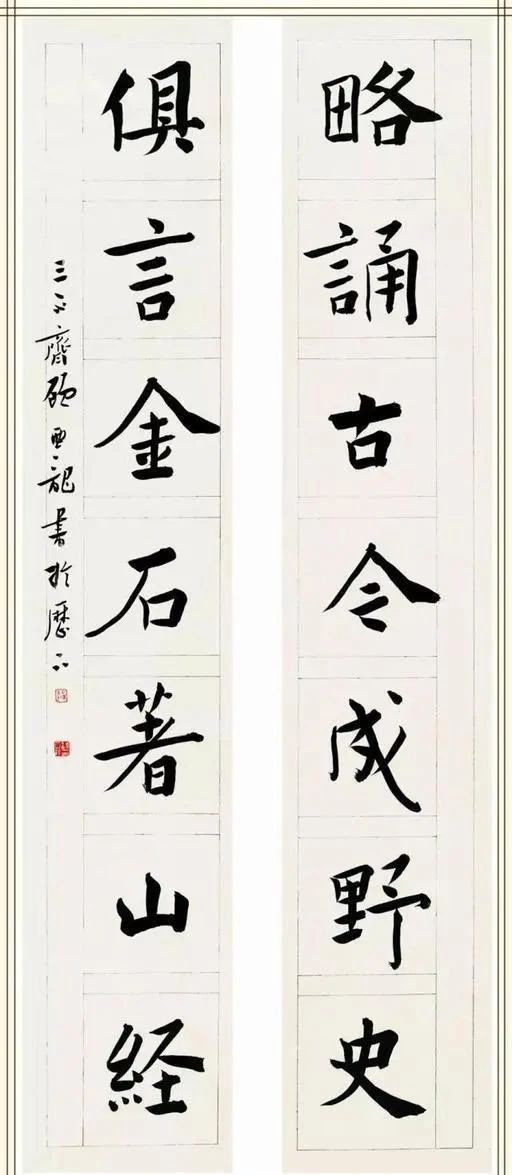 略誦古今成野史
俱言金石著山経
三不齋顧亜龍書於歷下